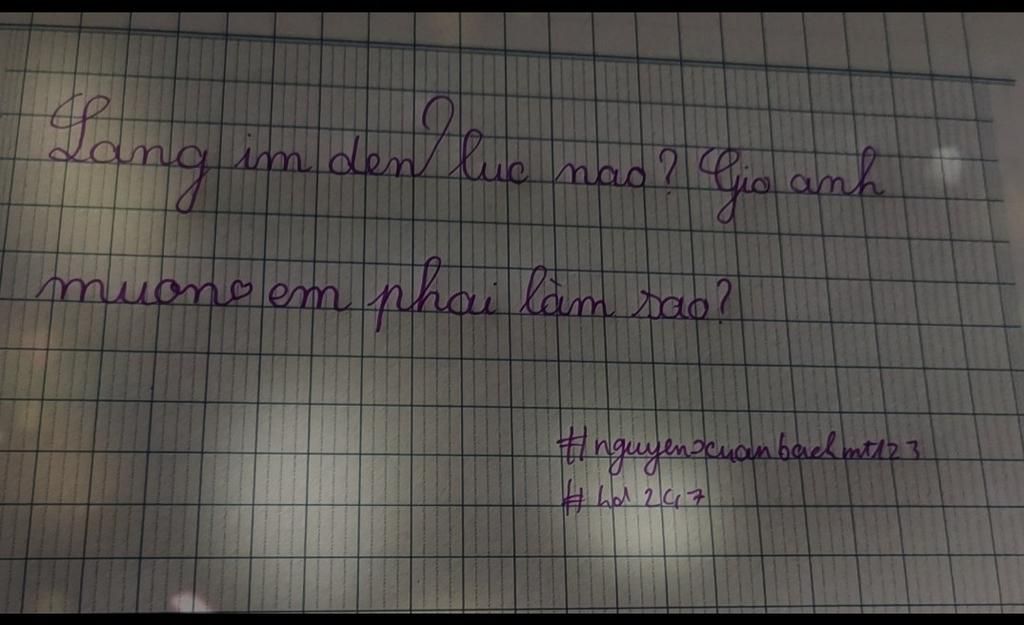 Lang im den luc nao? Gio anh
muono em phai làm sao?
#nguyenxuanbachmt123
#hd247